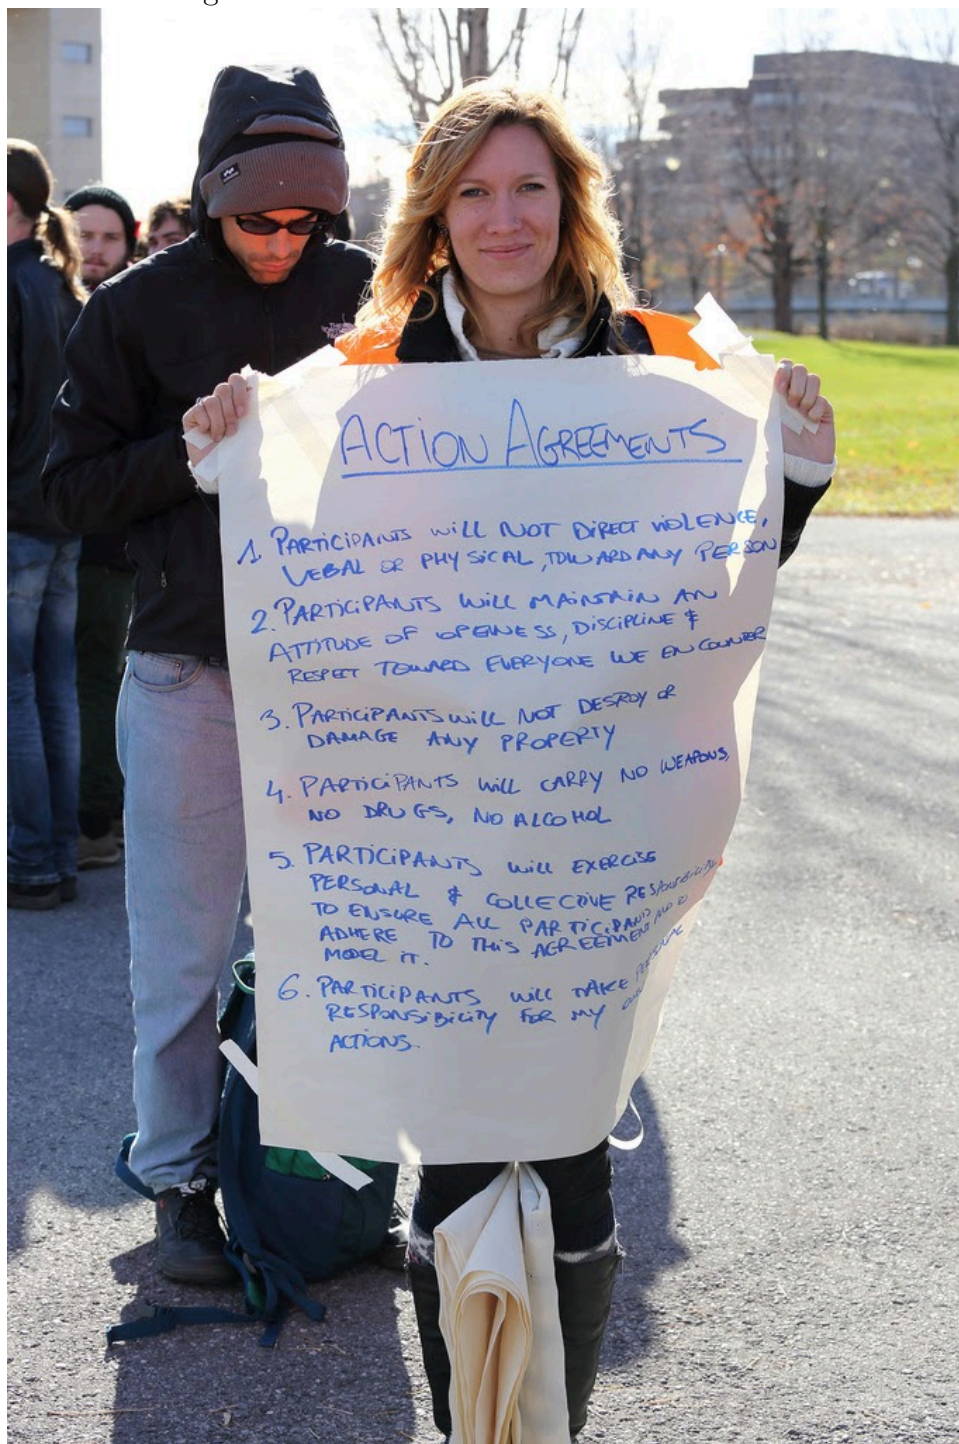 ACTION AGREEMENTS
1. PARTICIPANTS WILL NOT DIRECT VIOLENCE,
VEBAL OR PHYSICAL, TOWARD ANY PERSON
2. PARTICIPANTS WILL MAINTAIN AN
ATTITUDE OF OPENESS, DISCIPLINE &
RESPECT TOWARD EVERYONE WE ENCOUNTER
3. PARTICIPANTS WILL NOT DESROY OR
DAMAGE ANY PROPERTY
4. PARTICIPANTS WILL CARRY NO WEAPONS,
NO DRUGS, NO ALCOHOL
5. PARTICIPANTS WILL EXERCISE
PERSONAL & COLLECTIVE RESPONSIBILITY
TO ENSURE ALL PARTICIPANTS
ADHERE TO THIS AGREEMENT AND TO
MODEL IT.
6. PARTICIPANTS WILL TAKE PERSONAL
RESPONSIBILITY FOR MY OWN
ACTIONS.